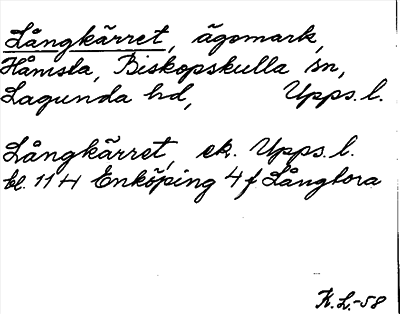 Långkärret, ägomark,
Håmsta, Biskopskulla sn,
Lagunda hd, Upps. l.
Långkärret, ek. Upps. l.
bl. 114 Enköping 4 f Långtora
K.L.-58